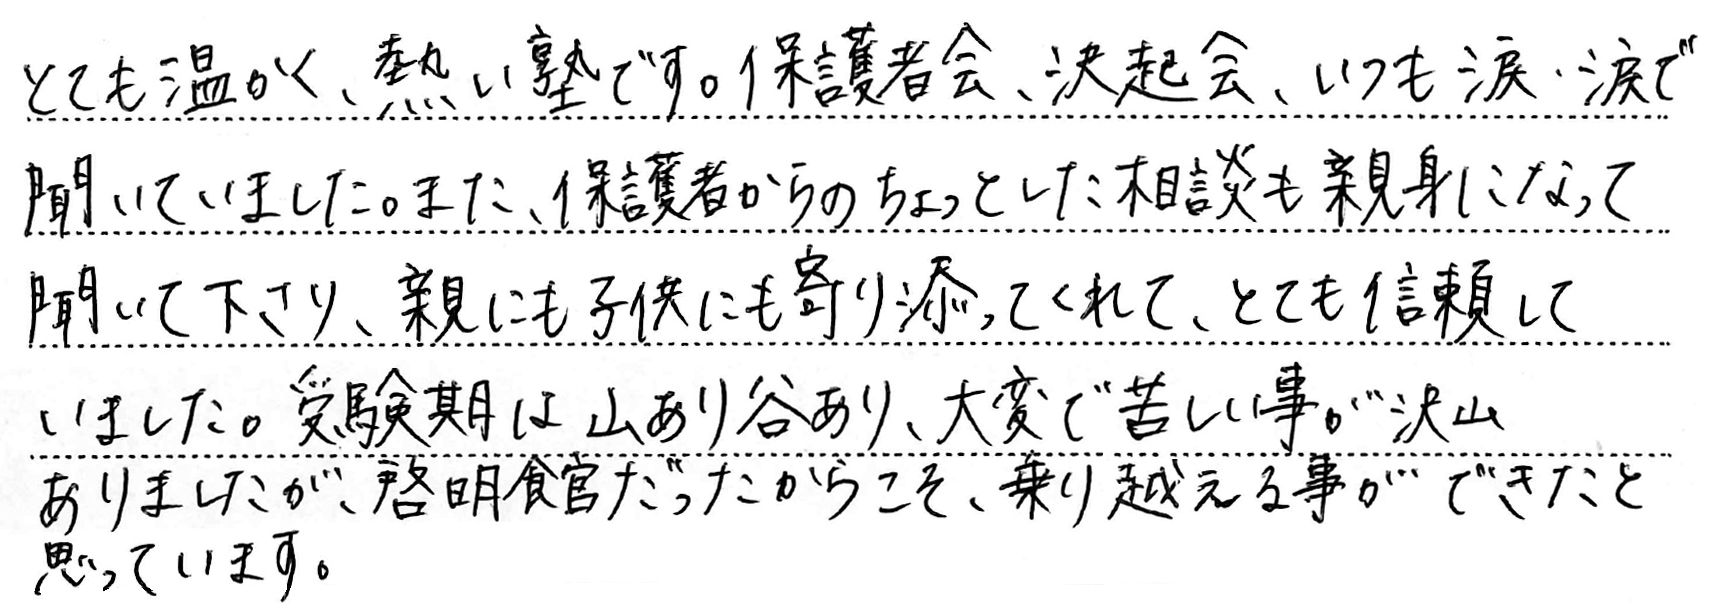 とても温かく、熱い塾です。保護者会、決起会、いつも涙・涙で
聞いていました。また、保護者からのちょっとした相談も親身になって
聞いて下さり、親にも子供にも寄り添ってくれて、とても信頼して
いました。受験期は山あり谷あり、大変で苦しい事が沢山
ありましたが、啓明館だったからこそ、乗り越える事ができたと
思っています。